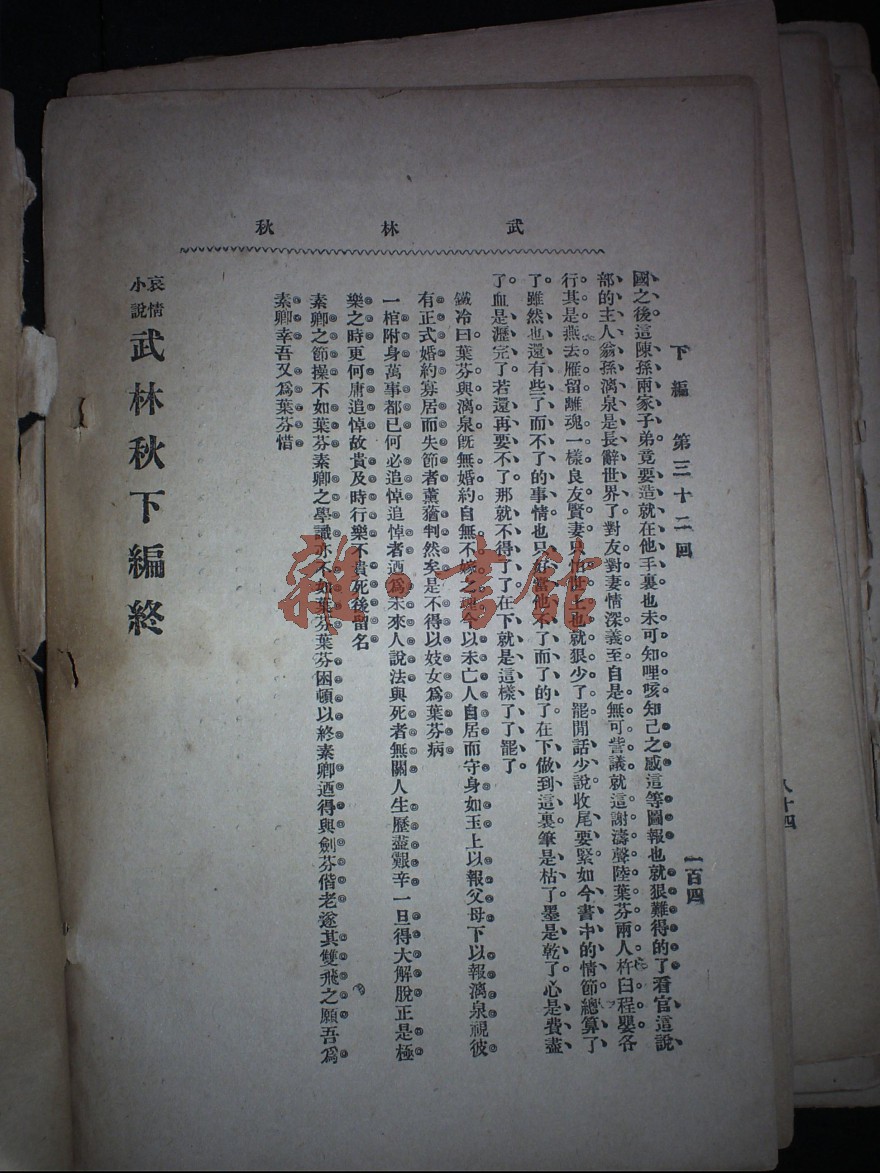 武林秋
下編 第三十二回 一百四
國之後這陳孫兩家子弟竟要造就在他手裏也未可知哩咳知己之感這等圖報也就狠難得的了看官這說
部的主人翁孫漓泉是長辭世界了對友對妻情深義至自是無可訾議就這謝濤聲陸葉芬兩人杵臼程嬰各
行其是燕去雁留離魂一樣良友賢妻只怕世上也就狠少了罷閒話少說收尾要緊如今書中的情節總算了
了雖然也還有些了而不了的事情也只好當他不了而了的了在下做到這裏筆是枯了墨是乾了心是費盡
了血是瀝完了若還再要不了那就不得了了在下就是這樣了了罷了
鐵冷曰葉芬與漓泉旣無婚約自無不嫁之理今以未亡人自居而守身如玉上以報父母下以報漓泉視彼
有正式婚約寡居而失節者薰蕕判然矣是不得以妓女爲葉芬病
一棺附身萬事都已何必追悼追悼者迺爲未來人說法與死者無關人生歷盡艱辛一旦得大解脫正是極
樂之時更何庸追悼故貴及時行樂不貴死後留名
素卿之節操不如葉芬素卿之學識亦不如葉芬葉芬困頓以終素卿迺得與劍芬偕老遂其雙飛之願吾爲
素卿幸吾又爲葉芬惜
哀情小說 武林秋下編終
八十四
雜·書館